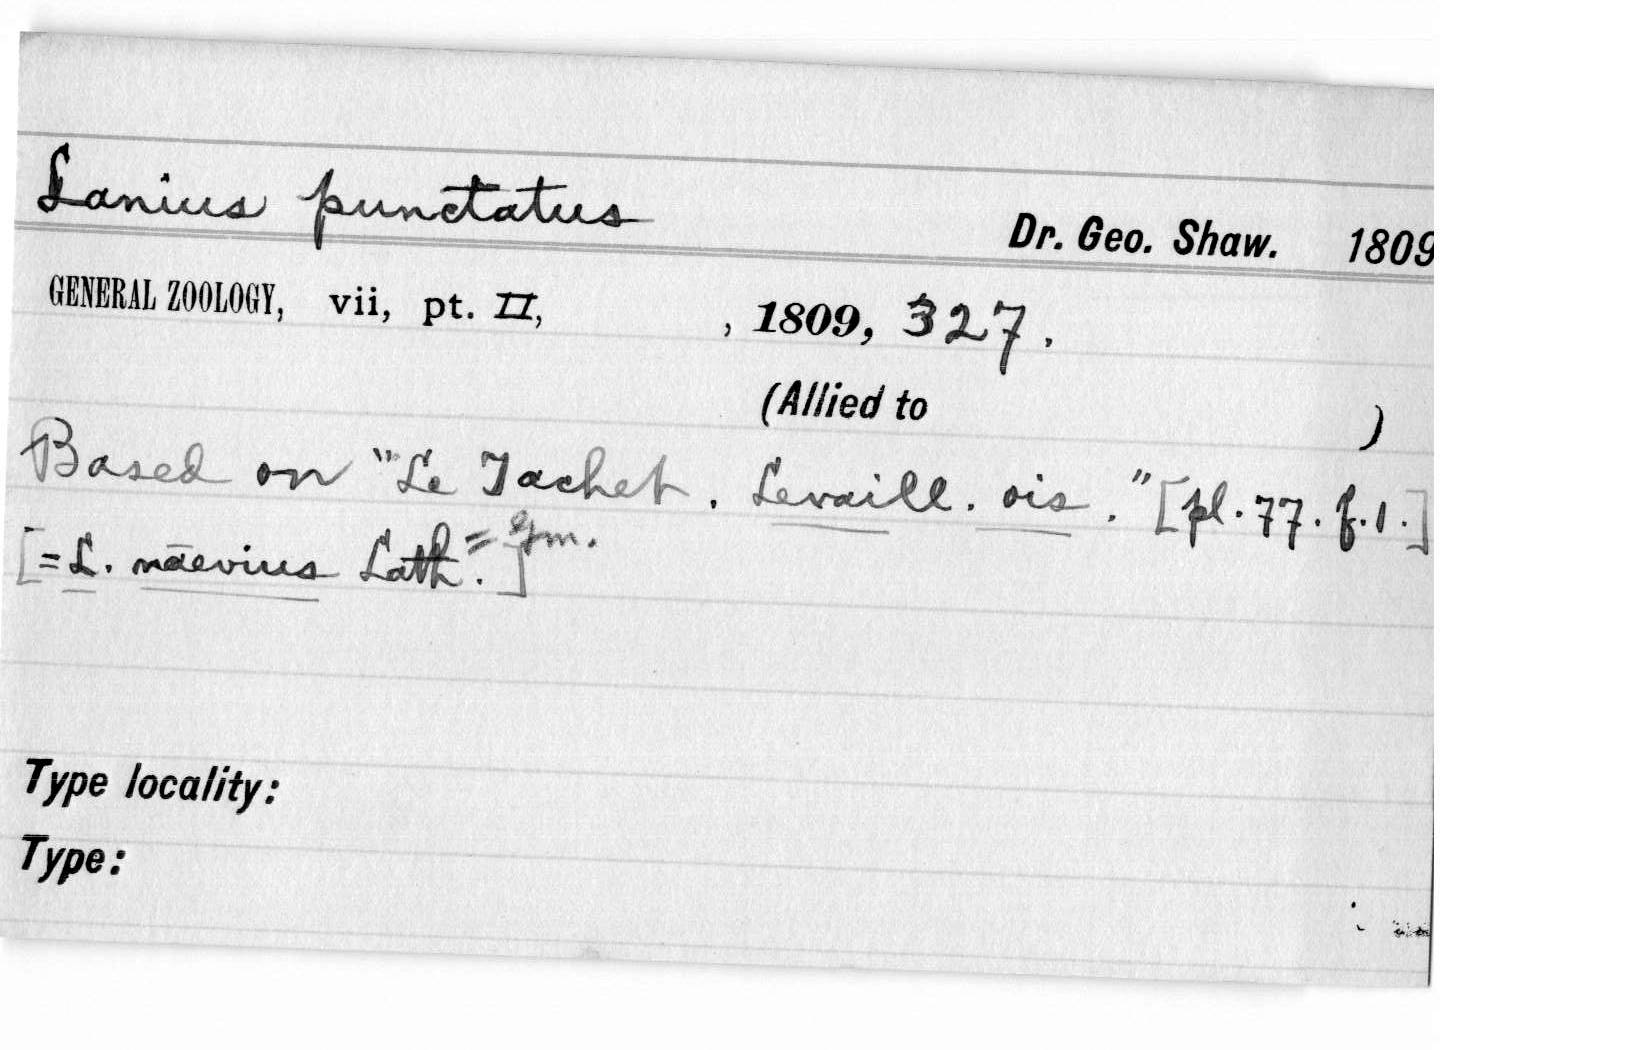 Lanius punctatus
Dr. Geo. Shaw. 1809
GENERAL ZOOLOGY, vii, pt. II, , 1809, 327.
(Allied to )
Based on "Le Tachet. Levaill. ois." [pl. 77. f. 1.]
[= L. naevius Lath.] = Gm.
Type locality:
Type: